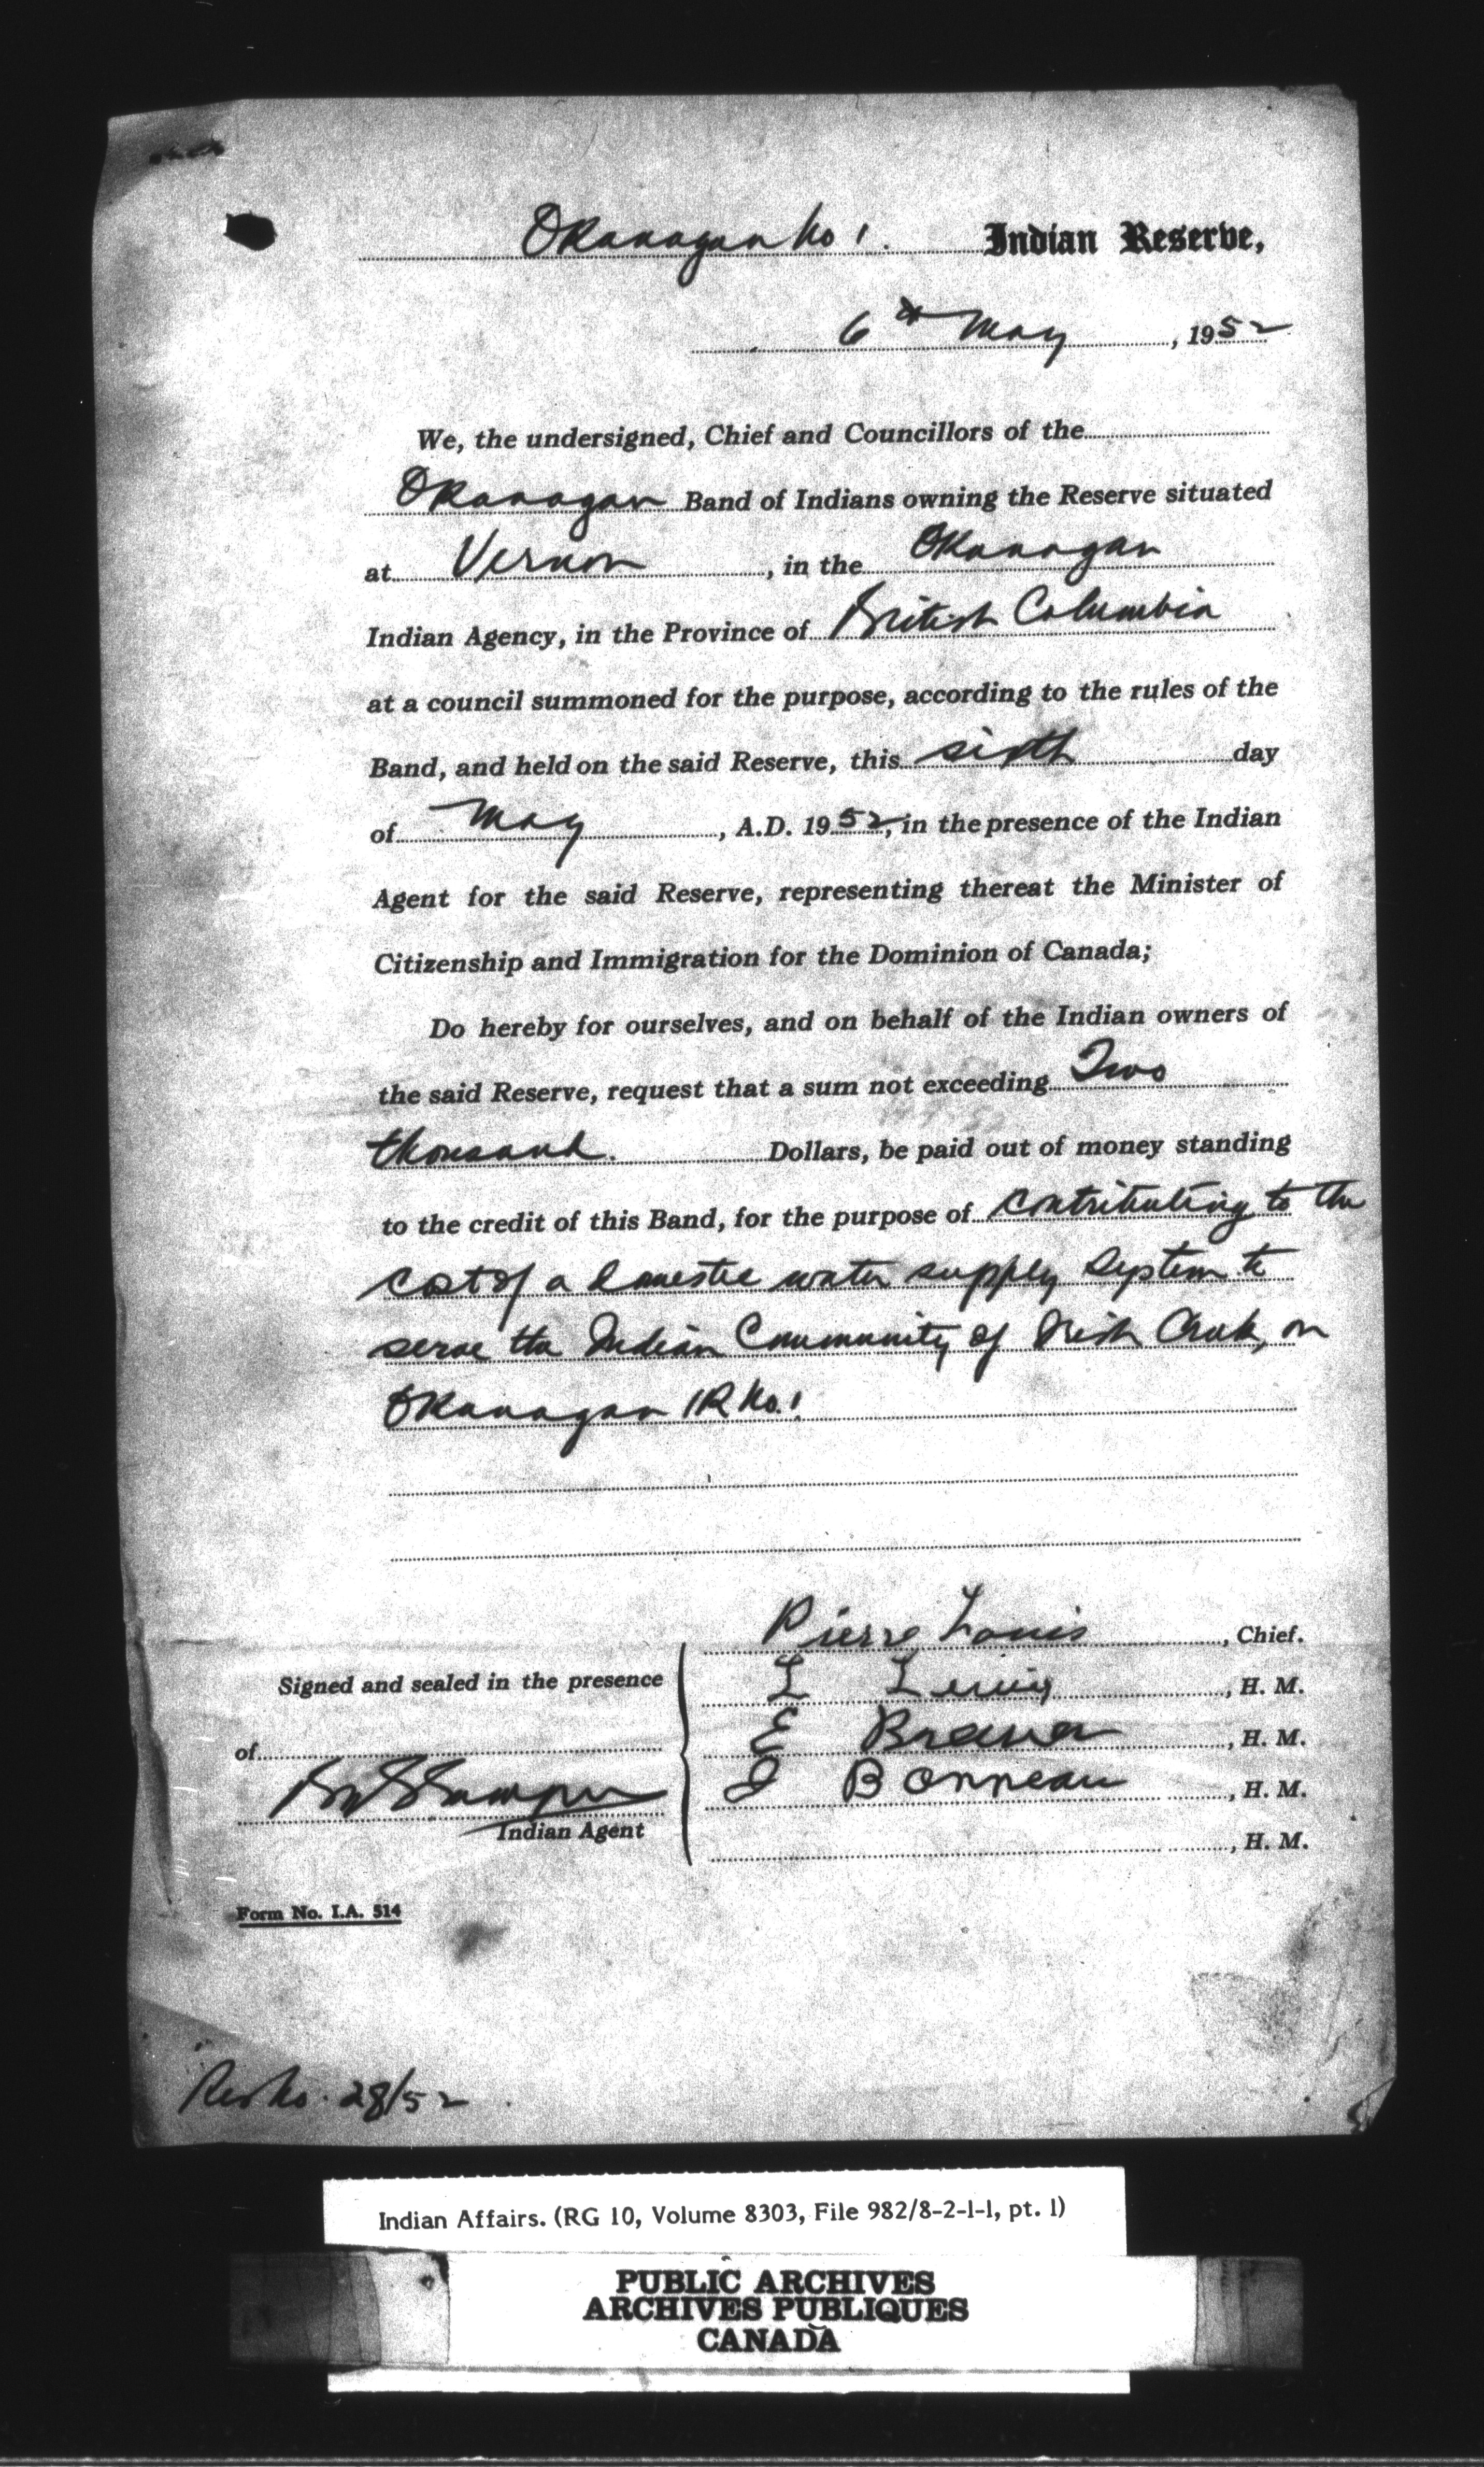 Okanagan No 1. Indian Reserve,
6th May, 1952
We, the undersigned, Chief and Councillors of the
Okanagan Band of Indians owning the Reserve situated
at Vernon, in the Okanagan
Indian Agency, in the Province of British Columbia
at a council summoned for the purpose, according to the rules of the
Band, and held on the said Reserve, this sixth day
of May, A.D. 1952, in the presence of the Indian
Agent for the said Reserve, representing thereat the Minister of
Citizenship and Immigration for the Dominion of Canada;
Do hereby for ourselves, and on behalf of the Indian owners of
the said Reserve, request that a sum not exceeding Two
thousand. Dollars, be paid out of money standing
to the credit of this Band, for the purpose of contributing to the
cost of a domestic water supply system to
serve the Indian Community of Irish Creek, on
Okanagan IR No. 1
Pierre Louis, Chief.
Signed and sealed in the presence
L, H. M.
of
E, H. M.
Bonneau, H. M.
Indian Agent
, H. M.
Form No. I.A. 514
Res No. 28/52
Indian Affairs. (RG 10, Volume 8303, File 982/8-2-1-1, pt. 1)
PUBLIC ARCHIVES
ARCHIVES PUBLIQUES
CANADA